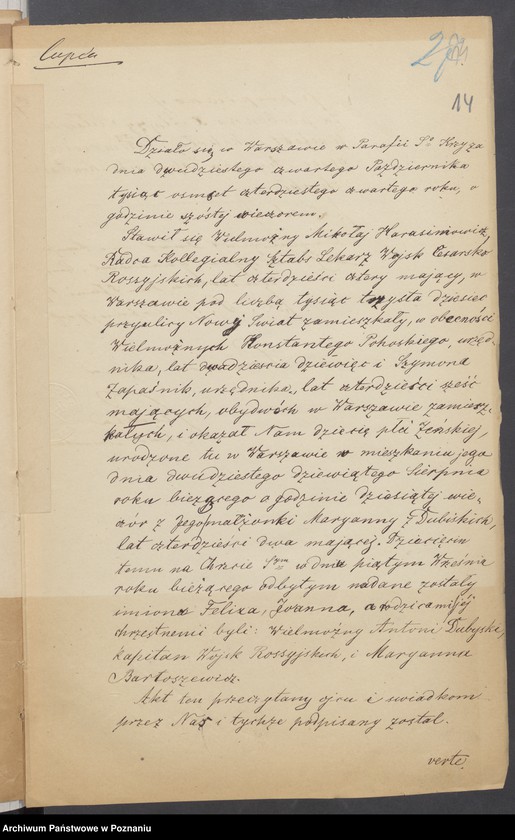 Copia
14
Działo się w Warszawie w Parafii Sº Krzyża
dnia dwudziestego czwartego Października
tysiąc osmset czterdziestego czwartego roku, o
godzinie szóstej wieczorem.
Stawił się Wielmożny Mikołaj Harasimowicz,
Radca Kollegialny Sztabs Lekarz Wojsk Cesarsko
Rossyjskich, lat czterdzieści cztery mający, w
Warszawie pod liczbą tysiąc trzysta dziesięć
przy ulicy Nowy Świat zamieszkały, w obecności
Wielmożnych Konstantego Pohoskiego, urzęd-
nika, lat dwadzieścia dziewięć i Szymona
Zapaśnik, urzędnika, lat czterdzieści sześć
mających, obydwóch w Warszawie zamiesz-
kałych, i okazał Nam dziecię płci żeńskiej,
urodzone tu w Warszawie w mieszkaniu jego
dnia dwudziestego dziewiątego Sierpnia
roku bieżącego o godzinie dziesiątej wie-
czór z Jego małżonki Maryanny z Dubiskich,
lat czterdzieści dwa mającej. Dziecięciu
temu na Chrzcie Sym w dniu piątym Września
roku bieżącego odbytym nadane zostały
imiona Felixa, Joanna, a rodzicami jej
chrzestnemi byli: Wielmożny Antoni Dubyski,
Kapitan Wojsk Rossyjskich, i Maryanna
Bartoszewicz.
Akt ten przeczytany ojcu i świadkom
przez Nas i tychże podpisany został.
verte.
Archiwum Państwowe w Poznaniu